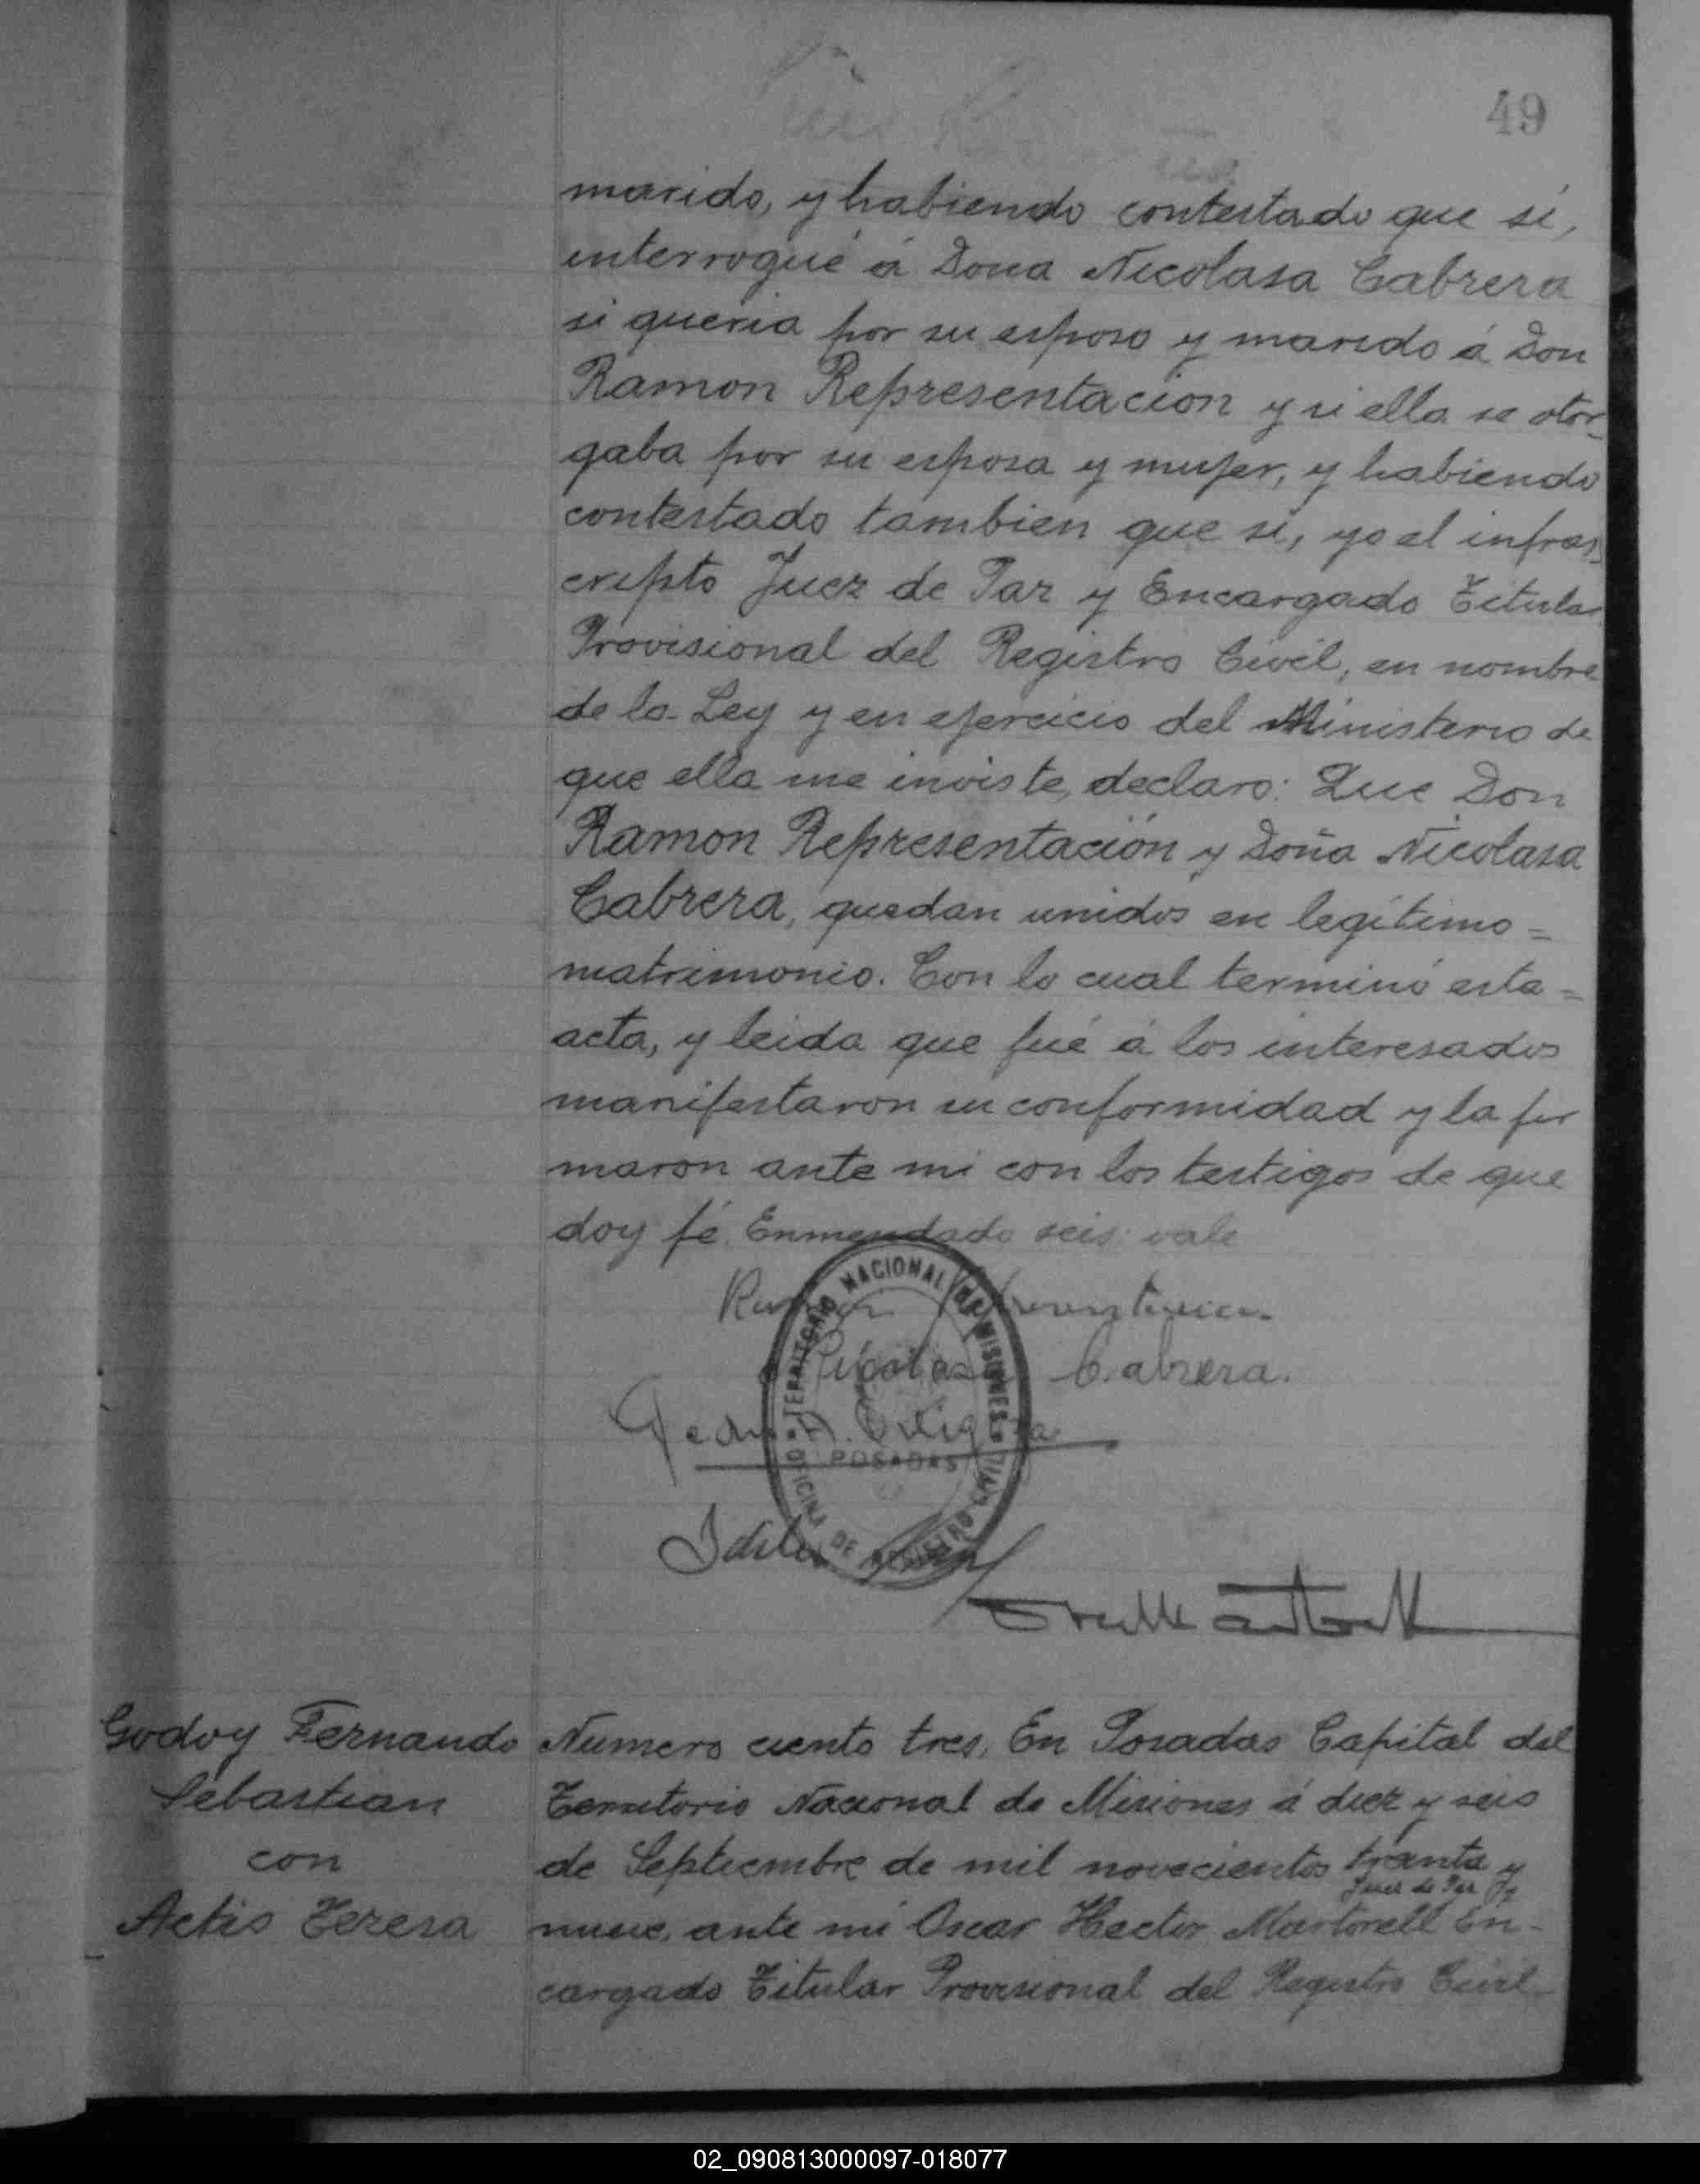 49
marido, y habiendo contestado que sí,
interrogué á Doña Nicolasa Cabrera
si queria por su esposo y marido á Don
Ramon Representacion y si ella se otor-
gaba por su esposa y mujer, y habiendo
contestado tambien que si, yo el infras-
cripto Juez de Paz y Encargado Titular
Provisional del Registro Civil, en nombre
de la Ley y en ejercicio del Ministerio de
que ella me inviste, declaro: Que Don
Ramon Representación y Doña Nicolasa
Cabrera, quedan unidos en legítimo =
matrimonio. Con lo cual terminó esta =
acta, y leida que fué á los interesados
manifestaron su conformidad y la fir
maron ante mi con los testigos de que
doy fé. Enmendado seis: vale
Ramon
Nicolasa Cabrera.
Pedro A.
TERRITORIO NACIONAL DE MISIONES
POSADAS
OFICINA DE REGISTRO CIVIL
Godoy Fernando
Sebastian
con
Actis Teresa
Numero ciento tres. En Posadas Capital del
Territorio Nacional de Misiones á diez y seis
de Septiembre de mil novecientos treinta y
Juez de Paz y
nueve, ante mi Oscar Hector Martorell En-
cargado Titular Provisional del Registro Civil
02_090813000097-018077